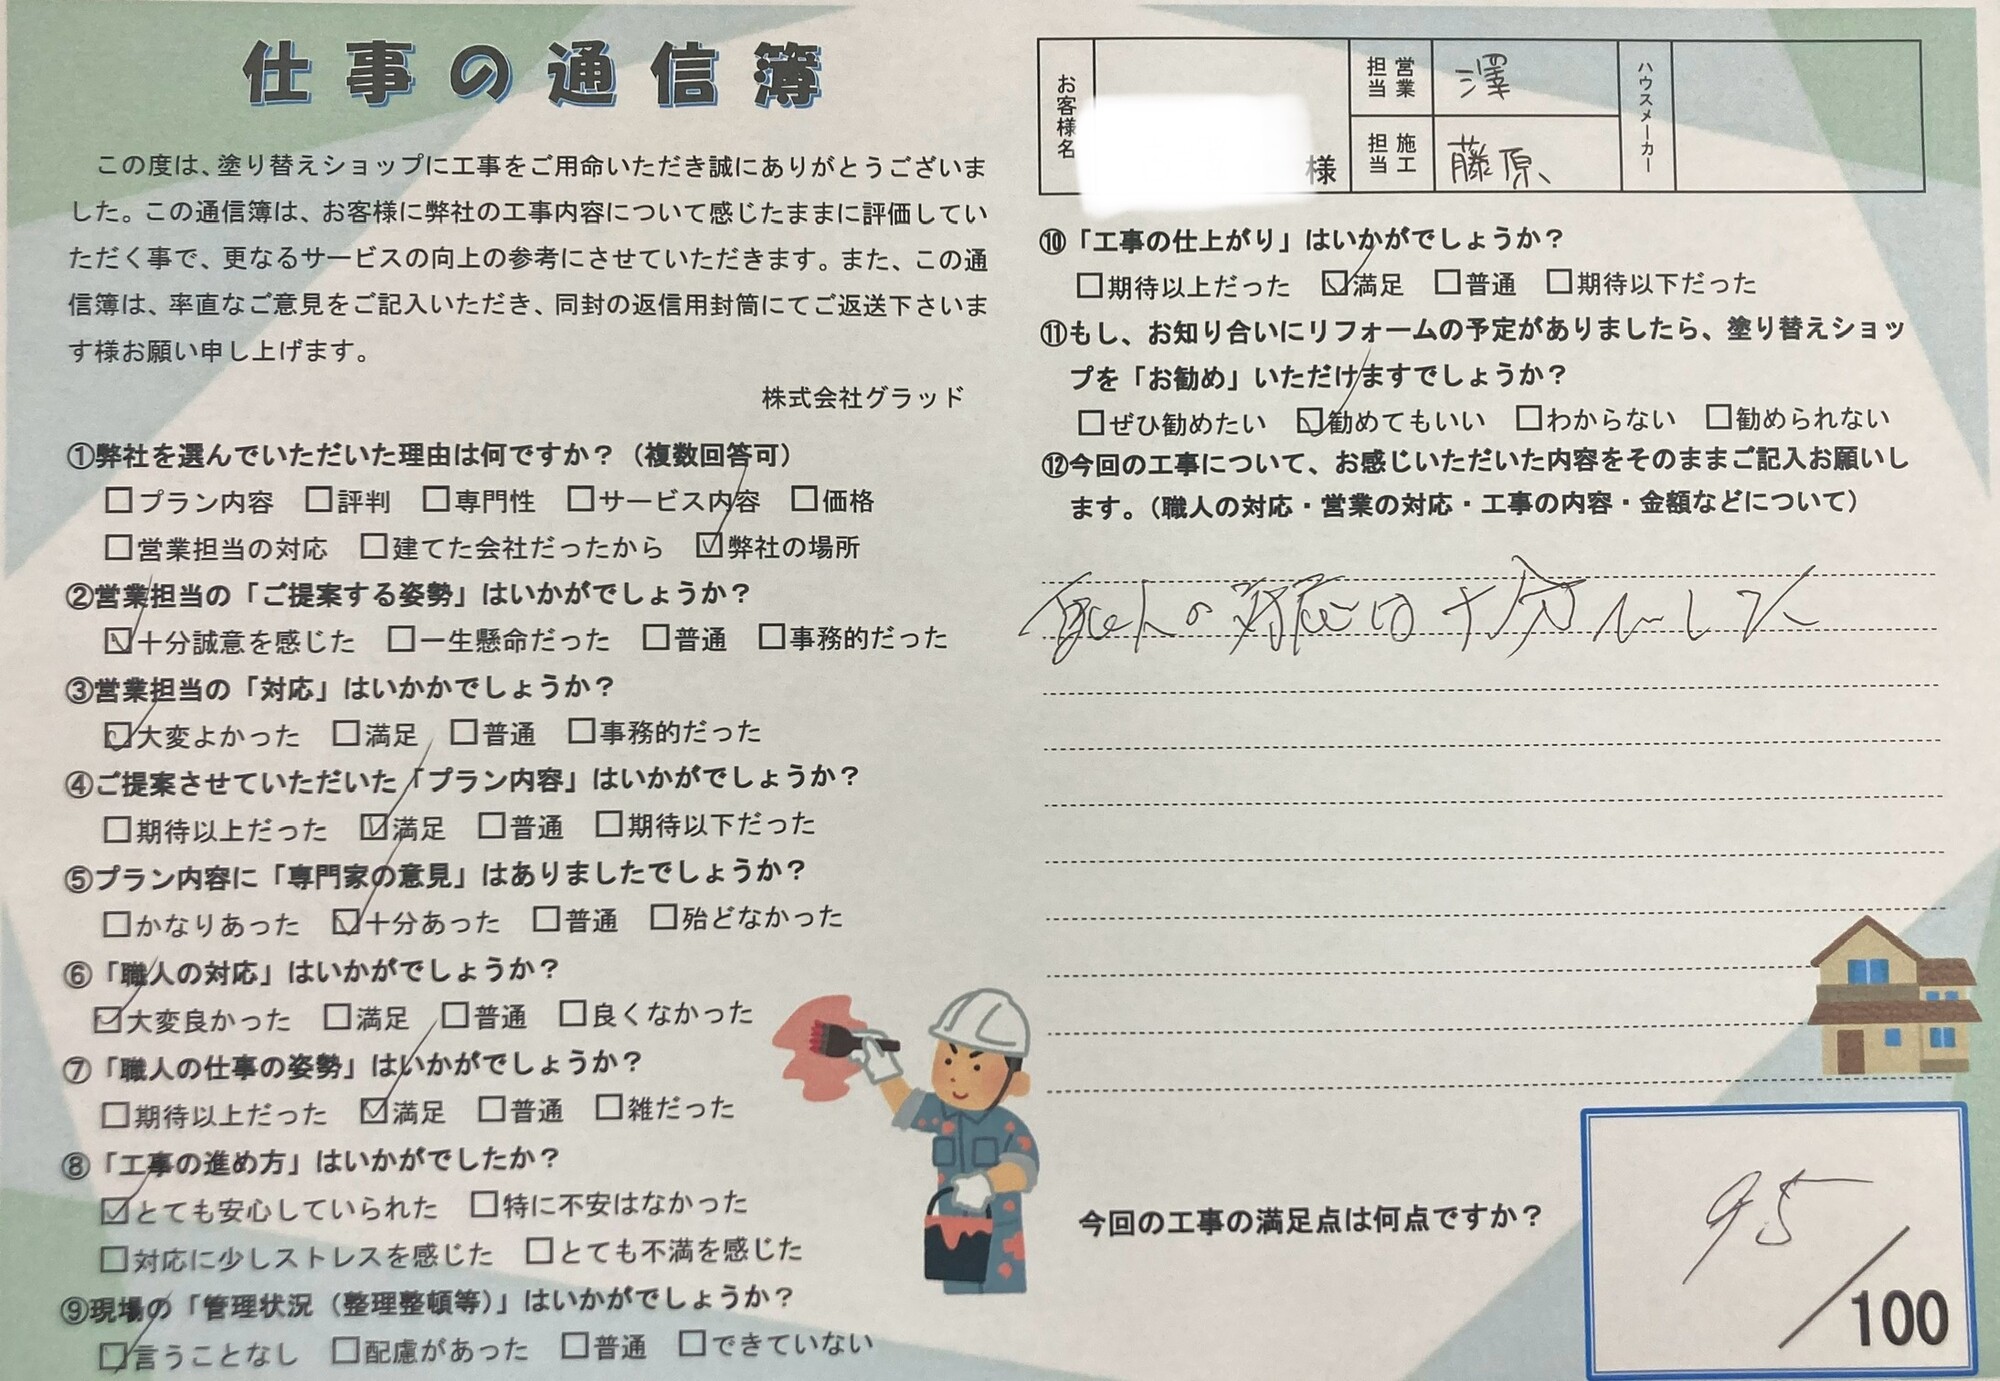 仕事の通信簿
この度は、塗り替えショップに工事をご用命いただき誠にありがとうございま
した。この通信簿は、お客様に弊社の工事内容について感じたままに評価してい
ただく事で、更なるサービスの向上の参考にさせていただきます。また、この通
信簿は、率直なご意見をご記入いただき、同封の返信用封筒にてご返送下さいま
す様お願い申し上げます。
株式会社グラッド
①弊社を選んでいただいた理由は何ですか？（複数回答可）
□プラン内容 □評判 □専門性 □サービス内容 □価格
□営業担当の対応 □建てた会社だったから ☑弊社の場所
②営業担当の「ご提案する姿勢」はいかがでしょうか？
☑十分誠意を感じた □一生懸命だった □普通 □事務的だった
③営業担当の「対応」はいかかでしょうか？
☑大変よかった □満足 □普通 □事務的だった
④ご提案させていただいた「プラン内容」はいかがでしょうか？
□期待以上だった ☑満足 □普通 □期待以下だった
⑤プラン内容に「専門家の意見」はありましたでしょうか？
□かなりあった ☑十分あった □普通 □殆どなかった
⑥「職人の対応」はいかがでしょうか？
☑大変良かった □満足 □普通 □良くなかった
⑦「職人の仕事の姿勢」はいかがでしょうか？
□期待以上だった ☑満足 □普通 □雑だった
⑧「工事の進め方」はいかがでしたか？
☑とても安心していられた □特に不安はなかった
□対応に少しストレスを感じた □とても不満を感じた
⑨現場の「管理状況（整理整頓等）」はいかがでしょうか？
☑言うことなし □配慮があった □普通 □できていない
お客様名 様
営業担当 澤
施工担当 藤原
ハウスメーカー
⑩「工事の仕上がり」はいかがでしょうか？
□期待以上だった ☑満足 □普通 □期待以下だった
⑪もし、お知り合いにリフォームの予定がありましたら、塗り替えショッ
プを「お勧め」いただけますでしょうか？
□ぜひ勧めたい ☑勧めてもいい □わからない □勧められない
⑫今回の工事について、お感じいただいた内容をそのままご記入お願いし
ます。（職人の対応・営業の対応・工事の内容・金額などについて）
職人の対応は十分でした
今回の工事の満足点は何点ですか？
95
/100